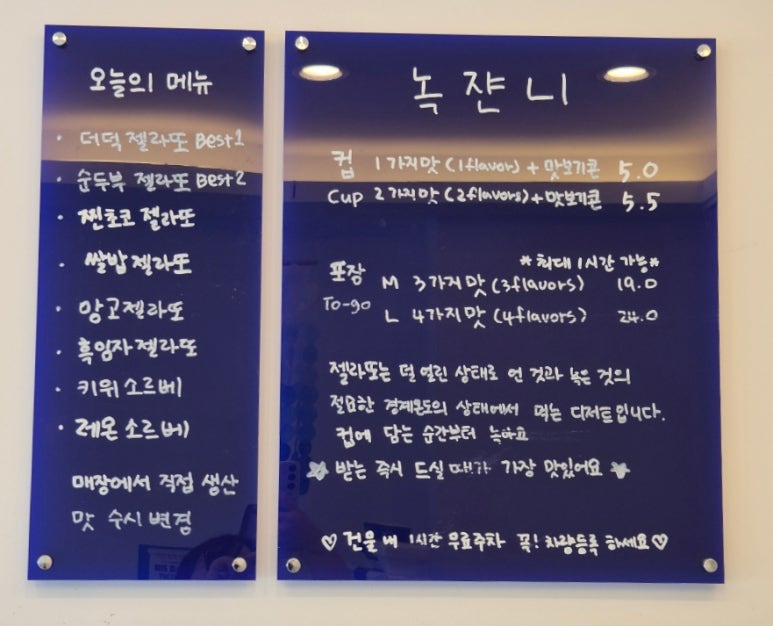 오늘의 메뉴
· 더덕 젤라또 Best1
· 순두부 젤라또 Best2
· 찐초코 젤라또
· 쌀밥 젤라또
· 앙고젤라또
· 흑임자 젤라또
· 키위 소르베
· 레몬 소르베
매장에서 직접 생산
맛 수시 변경
녹쟌니
컵 1가지맛 (1flavor) + 맛보기콘 5.0
Cup 2가지맛 (2flavors) + 맛보기콘 5.5
*최대 1시간 가능*
포장 M 3가지맛 (3flavors) 19.0
To-go L 4가지맛 (4flavors) 24.0
젤라또는 덜 얼린 상태로 언 것과 녹은 것의
절묘한 경계온도의 상태에서 먹는 디저트입니다.
컵에 담는 순간부터 녹아요
★ 받는 즉시 드실 때가 가장 맛있어요 ★
♡ 건물 내 1시간 무료주차 꼭! 차량등록 하세요 ♡